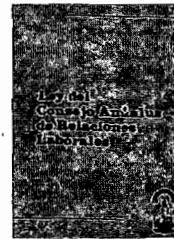 Ley del
Consejo Andaluz
de Relaciones
Laborales